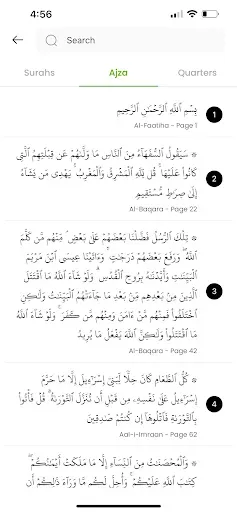 4:56
Search
Surahs
Ajza
Quarters
بِسْمِ ٱللَّهِ ٱلرَّحْمَٰنِ ٱلرَّحِيمِ
1
Al-Faatiha - Page 1
۞ سَيَقُولُ ٱلسُّفَهَآءُ مِنَ ٱلنَّاسِ مَا وَلَّىٰهُمْ عَن قِبْلَتِهِمُ ٱلَّتِى
كَانُوا۟ عَلَيْهَا ۚ قُل لِّلَّهِ ٱلْمَشْرِقُ وَٱلْمَغْرِبُ ۚ يَهْدِى مَن يَشَآءُ
إِلَىٰ صِرَٰطٍ مُّسْتَقِيمٍ
2
Al-Baqara - Page 22
۞ تِلْكَ ٱلرُّسُلُ فَضَّلْنَا بَعْضَهُمْ عَلَىٰ بَعْضٍ ۘ مِّنْهُم مَّن كَلَّمَ
ٱللَّهُ ۖ وَرَفَعَ بَعْضَهُمْ دَرَجَٰتٍ ۚ وَءَاتَيْنَا عِيسَى ٱبْنَ مَرْيَمَ
ٱلْبَيِّنَٰتِ وَأَيَّدْنَٰهُ بِرُوحِ ٱلْقُدُسِ ۗ وَلَوْ شَآءَ ٱللَّهُ مَا ٱقْتَتَلَ
ٱلَّذِينَ مِنۢ بَعْدِهِم مِّنۢ بَعْدِ مَا جَآءَتْهُمُ ٱلْبَيِّنَٰتُ وَلَٰكِنِ
ٱخْتَلَفُوا۟ فَمِنْهُم مَّنْ ءَامَنَ وَمِنْهُم مَّن كَفَرَ ۚ وَلَوْ شَآءَ ٱللَّهُ
مَا ٱقْتَتَلُوا۟ وَلَٰكِنَّ ٱللَّهَ يَفْعَلُ مَا يُرِيدُ
3
Al-Baqara - Page 42
۞ كُلُّ ٱلطَّعَامِ كَانَ حِلًّا لِّبَنِىٓ إِسْرَٰٓءِيلَ إِلَّا مَا حَرَّمَ
إِسْرَٰٓءِيلُ عَلَىٰ نَفْسِهِۦ مِن قَبْلِ أَن تُنَزَّلَ ٱلتَّوْرَىٰةُ ۗ قُلْ فَأْتُوا۟
بِٱلتَّوْرَىٰةِ فَٱتْلُوهَآ إِن كُنتُمْ صَٰدِقِينَ
4
Aal-i-Imraan - Page 62
۞ وَٱلْمُحْصَنَٰتُ مِنَ ٱلنِّسَآءِ إِلَّا مَا مَلَكَتْ أَيْمَٰنُكُمْ ۖ
كِتَٰبَ ٱللَّهِ عَلَيْكُمْ ۚ وَأُحِلَّ لَكُم مَّا وَرَآءَ ذَٰلِكُمْ أَن